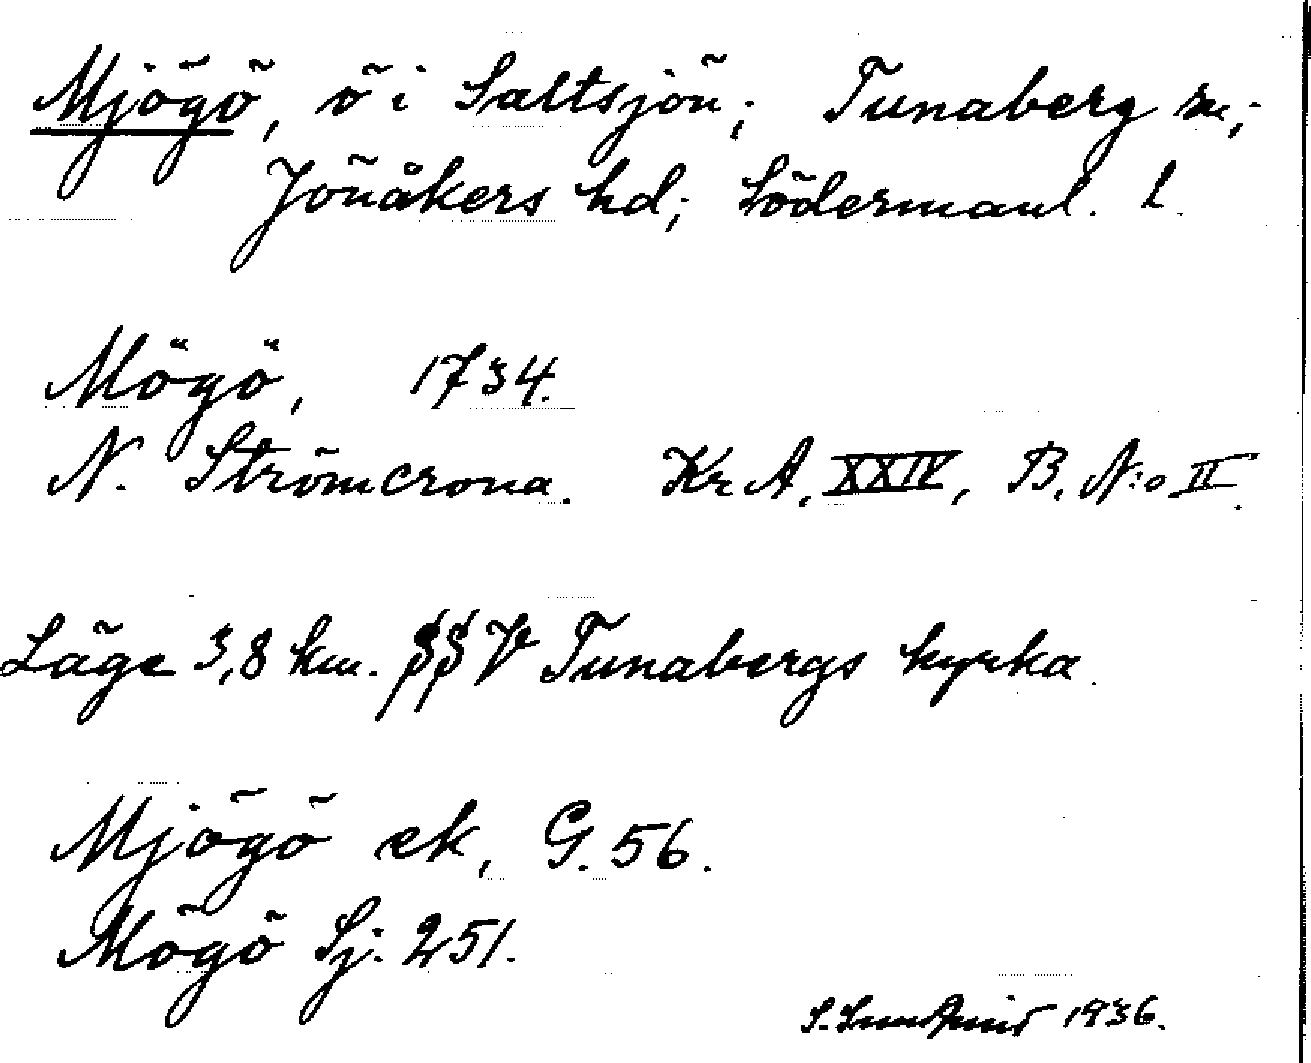 Mjögö, ö i Saltsjön; Tunaberg sn;
Jönåkers hd; Södermanl. l.
Mögö, 1734.
N. Strömcrona. Kr A. XXIV, B. N:o II.
Läge 3,8 km. SSV Tunabergs kyrka.
Mjögö ek, G. 56.
Mögö Sj. 251.
S. 1936.